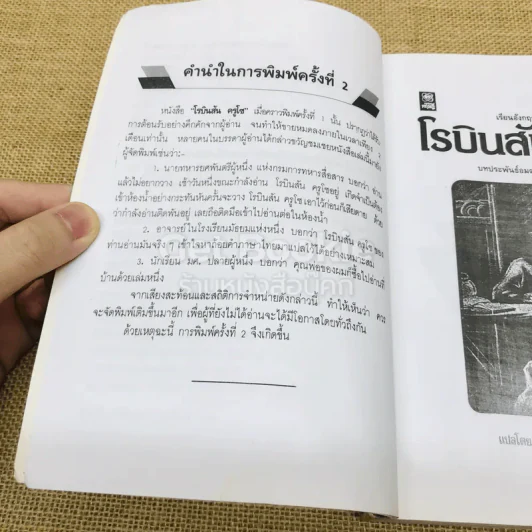 คำนำในการพิมพ์ครั้งที่ 2
หนังสือ "โรบินสัน ครูโซ" เมื่อคราวพิมพ์ครั้งที่ 1 นั้น ปรากฏว่าได้รับ
การต้อนรับอย่างคึกคักจากผู้อ่าน จนทำให้ขายหมดลงภายในเวลาเพียง 3
เดือนเท่านั้น หลายคนในบรรดาผู้อ่านได้กล่าวขวัญชมเชยหนังสือเล่มนี้มายัง
ผู้จัดพิมพ์เช่นว่า:-
1. นายทหารยศพันตรีผู้หนึ่ง แห่งกรมการทหารสื่อสาร บอกว่า อ่าน
แล้วไม่อยากวาง เช้าวันหนึ่งขณะกำลังอ่าน โรบินสัน ครูโซอยู่ เกิดจำเป็นต้อง
เข้าห้องน้ำอย่างกระทันหันครั้นจะวาง โรบินสัน ครูโซ เอาไว้ก่อนก็เสียดาย ด้วย
ว่ากำลังอ่านติดพันอยู่ เลยถือติดมือเข้าไปอ่านต่อในห้องน้ำ
2. อาจารย์ในโรงเรียนมัธยมแห่งหนึ่ง บอกว่า โรบินสัน ครูโซ ของ
ท่านอ่านมันจริง ๆ เข้าใจหาถ้อยคำภาษาไทยมาแปลไว้ได้อย่างเหมาะสม
3. นักเรียน มศ. ปลายผู้หนึ่ง บอกว่า คุณพ่อของผมก็ซื้อไปอ่านที่
บ้านด้วยเล่มหนึ่ง
จากเสียงสะท้อนและสถิติการจำหน่ายดังกล่าวนี้ ทำให้เห็นว่า ควร
จะจัดพิมพ์เติมขึ้นมาอีก เพื่อผู้ที่ยังไม่ได้อ่านจะได้มีโอกาสโดยทั่วถึงกัน
ด้วยเหตุฉะนี้ การพิมพ์ครั้งที่ 2 จึงเกิดขึ้น
ร้านหนังสือนัดคุก
เรียนอังกฤษ
โรบินสัน
บทประพันธ์อมตะ
แปลโดย